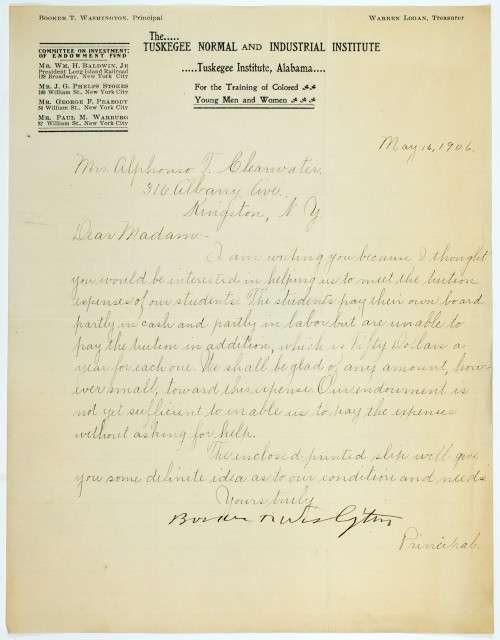 BOOKER T. WASHINGTON, Principal
WARREN LOGAN, Treasurer
The.....
TUSKEGEE NORMAL AND INDUSTRIAL INSTITUTE
.....Tuskegee Institute, Alabama....
For the Training of Colored
Young Men and Women
COMMITTEE ON INVESTMENT
OF ENDOWMENT FUND
MR. WM. H. BALDWIN, JR
President Long Island Railroad
128 Broadway, New York City
MR. J. G. PHELPS STOKES
100 William St., New York City
MR. GEORGE F. PEABODY
54 William St., New York City
MR. PAUL M. WARBURG
52 William St., New York City
May 16, 1906.
Mrs. Alphonso T. Clearwater,
316 Albany Ave.,
Kingston, N Y
Dear Madam:-
I am writing you because I thought
you would be interested in helping us to meet the tuition
expenses of our students. The students pay their own board
partly in cash and partly in labor but are unable to
pay the tuition in addition, which is Fifty Dollars a
year for each one. We shall be glad of any amount, how-
ever small, toward this expense. Our endowment is
not yet sufficient to enable us to pay the expenses
without asking for help.
The enclosed printed slip will give
you some definite idea as to our condition and needs
Yours truly
Booker T. Washington
Principal.